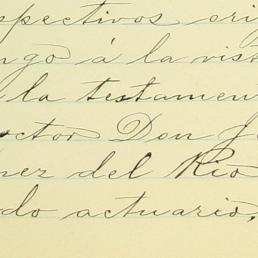 spectivos ori
ngo á la vist
la testamen
octor Don J
nez del Rio
do actuario,